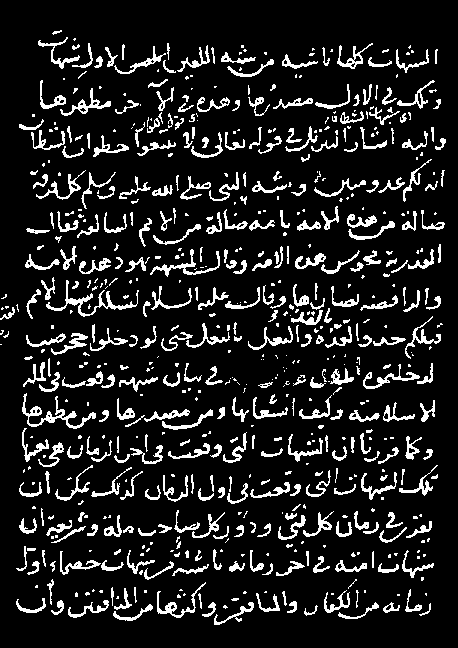 الشبهات كلها ناشيه من شبه اللعين ابليس الاول شبهات
وتلك في الاول مصدرها وهذه في الآخر مظهرها
اي شبهات الشيطان
واليه اشار التنزيل في قوله تعالى ولا تتبعوا خطوات الشيطان
انه لكم عدو مبين وشبه النبي صلى الله عليه وسلم كل فرقة
ضالة من هذه الامة بامة ضالة من الامم السالفة فقال
القدرية مجوس هذه الامة وقال المشبهة يهود هذه الامة
والرافضه نصاراها وقال عليه السلام لتسلكن سبل الامم
قبلكم حذو القذة بالقذة والنعل بالنعل حتى لو دخلوا جحر ضب
لدخلتموه في بيان شبهة وقعت في الملة
الاسلامية وكيف انشعابها ومن مصدرها ومن مظهرها
وكما قررنا ان الشبهات التي وقعت في اخر الزمان هي بعينها
تلك الشبهات التي وقعت في اول الزمان كذلك يمكن ان
يقرر في زمان كل نبي ودور كل صاحب ملة وشريعة ان
شبهات امته في آخر زمانه ناشئة من شبهات خصماء اول
زمانه من الكفار والمنافقين واكثرها من المنافقين وان